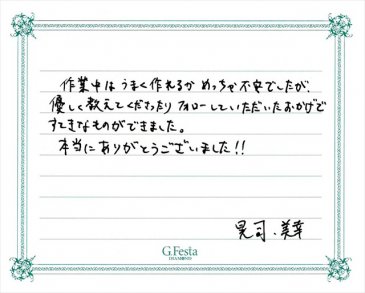 作業中はうまく作れるか めっちゃ不安でしたが、
優しく教えてくださったり フォローしていただいたおかげで
すてきなものができました。
本当にありがとうございました!!
晃司、美幸
G.Festa
DIAMOND